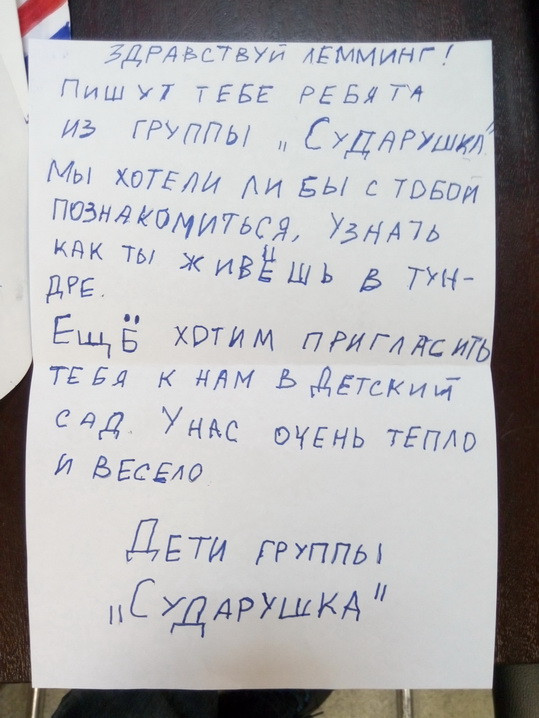 ЗДРАВСТВУЙ ЛЕММИНГ!
ПИШУТ ТЕБЕ РЕБЯТА
ИЗ ГРУППЫ „СУДАРУШКА"
МЫ ХОТЕЛИ ЛИ БЫ С ТОБОЙ
ПОЗНАКОМИТЬСЯ, УЗНАТЬ
КАК ТЫ ЖИВЁШЬ В ТУН-
ДРЕ.
ЕЩЁ ХОТИМ ПРИГЛАСИТЬ
ТЕБЯ К НАМ В ДЕТСКИЙ
САД. У НАС ОЧЕНЬ ТЕПЛО
И ВЕСЕЛО
ДЕТИ ГРУППЫ
„СУДАРУШКА"